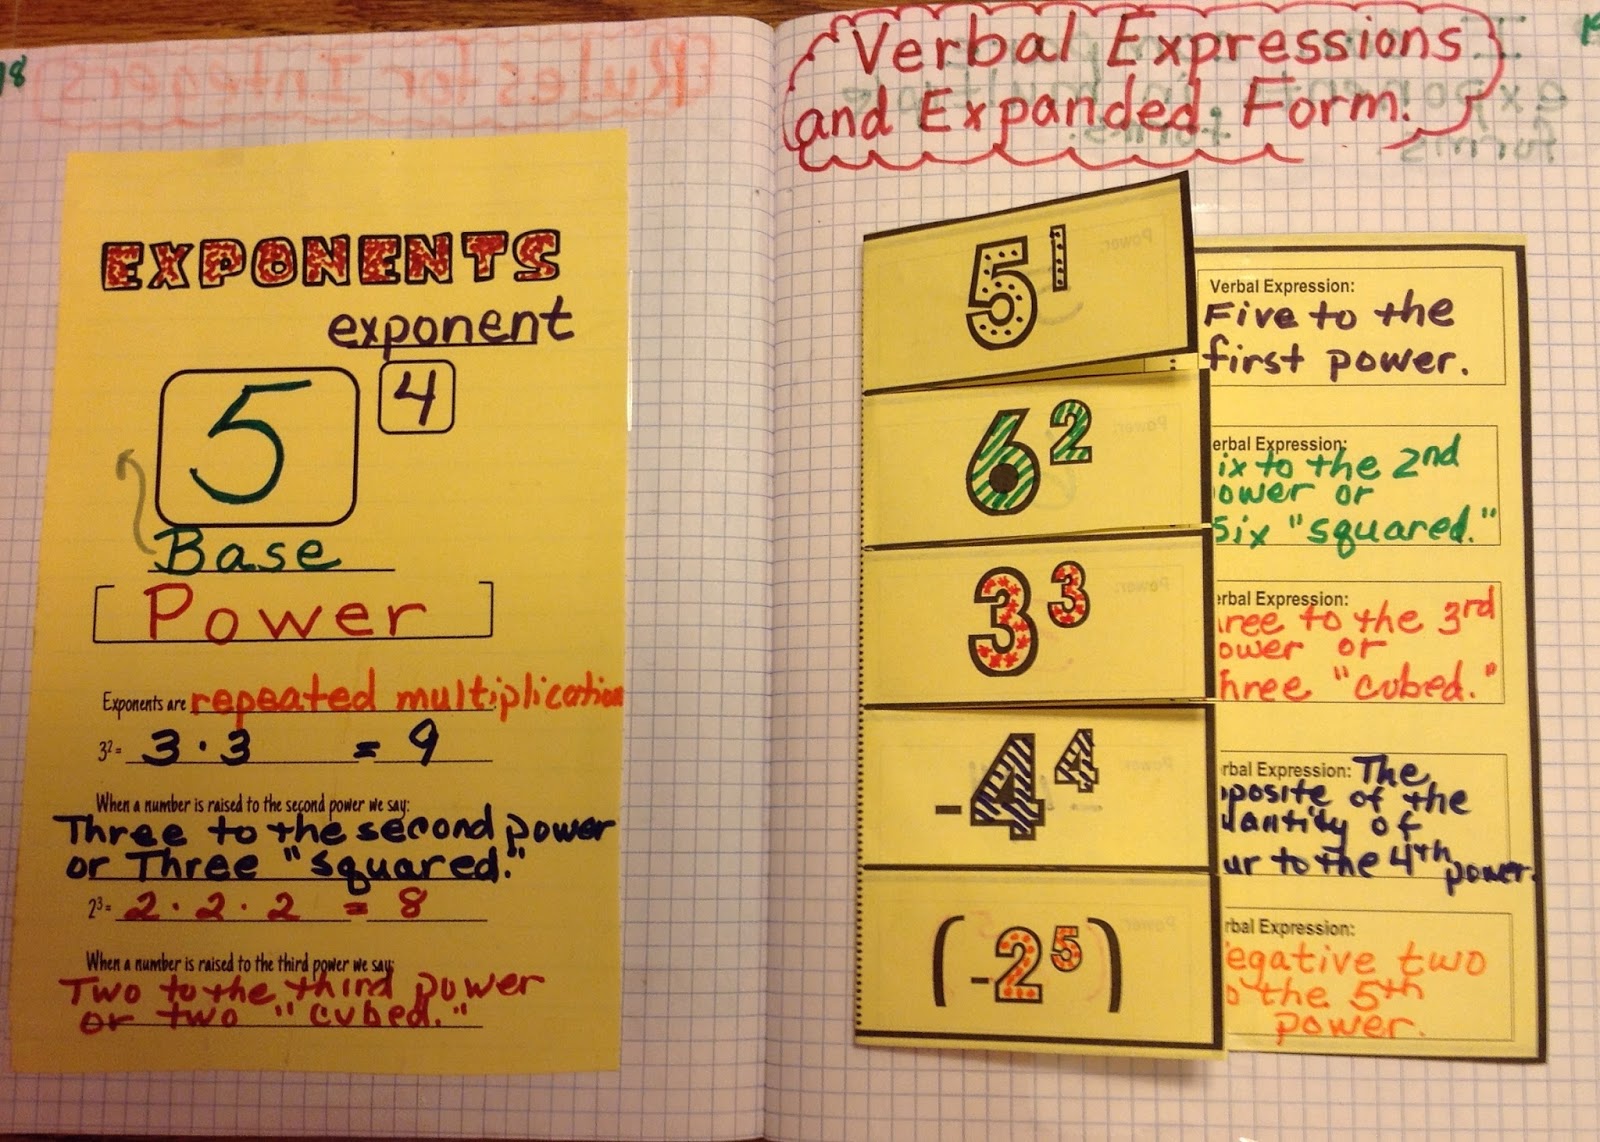 18
EXPONENTS
exponent
5⁴
Base
Power
Exponents are repeated multiplication
3²= 3 · 3 = 9
When a number is raised to the second power we say:
Three to the second power
or Three "squared."
2³= 2 · 2 · 2 = 8
When a number is raised to the third power we say:
Two to the third power
or two "cubed."
Verbal Expressions
and Expanded Form.
5¹
Verbal Expression:
Five to the
first power.
6²
erbal Expression:
ix to the 2nd
ower or
Six "squared."
3³
erbal Expression:
hree to the 3rd
ower or
hree "cubed."
-4⁴
rbal Expression: The
pposite of the
uantity of
ur to the 4th power.
(-2⁵)
rbal Expression:
egative two
o the 5th
power.